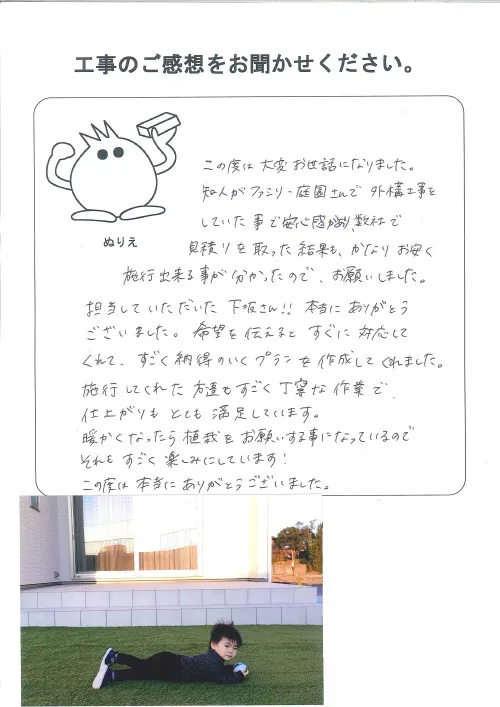 工事のご感想をお聞かせください。
ぬりえ
この度は大変お世話になりました。
知人がファミリー庭園さんで外構工事を
していた事で安心感があり、数社で
見積りを取った結果も、かなりお安く
施行出来る事が分かったので、お願いしました。
担当していただいた下坂さん!! 本当にありがとう
ございました。希望を伝えるとすぐに対応して
くれて、すごく納得のいくプランを作成してくれました。
施行してくれた方達もすごく丁寧な作業で、
仕上がりもとても満足しています。
暖かくなったら植栽をお願いする事になっているので
それもすごく楽しみにしています!
この度は本当にありがとうございました。